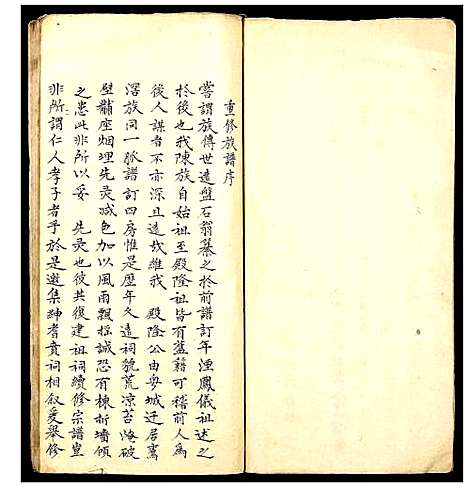 重修族譜序
嘗謂族傳世遠盤石翁纂之於前譜訂年湮鳳儀祖述之
於後也我陳族自始祖至殿隆祖皆有舊籍可稽前人為
後人謀者不亦深且遠哉維我 殿隆公由安城迁居萬
澤族同一脈譜訂四房惟是歷年久遠祠貌荒凉苔掩破
壁黼座烟埋先灵减色加以風雨飄搖誠恐有棟折墙傾
之患此非所以妥 先灵也彼共復建祖祠續修宗譜豈
非所謂仁人孝子者乎於是邀集紳耆賁祠相叙爰舉修